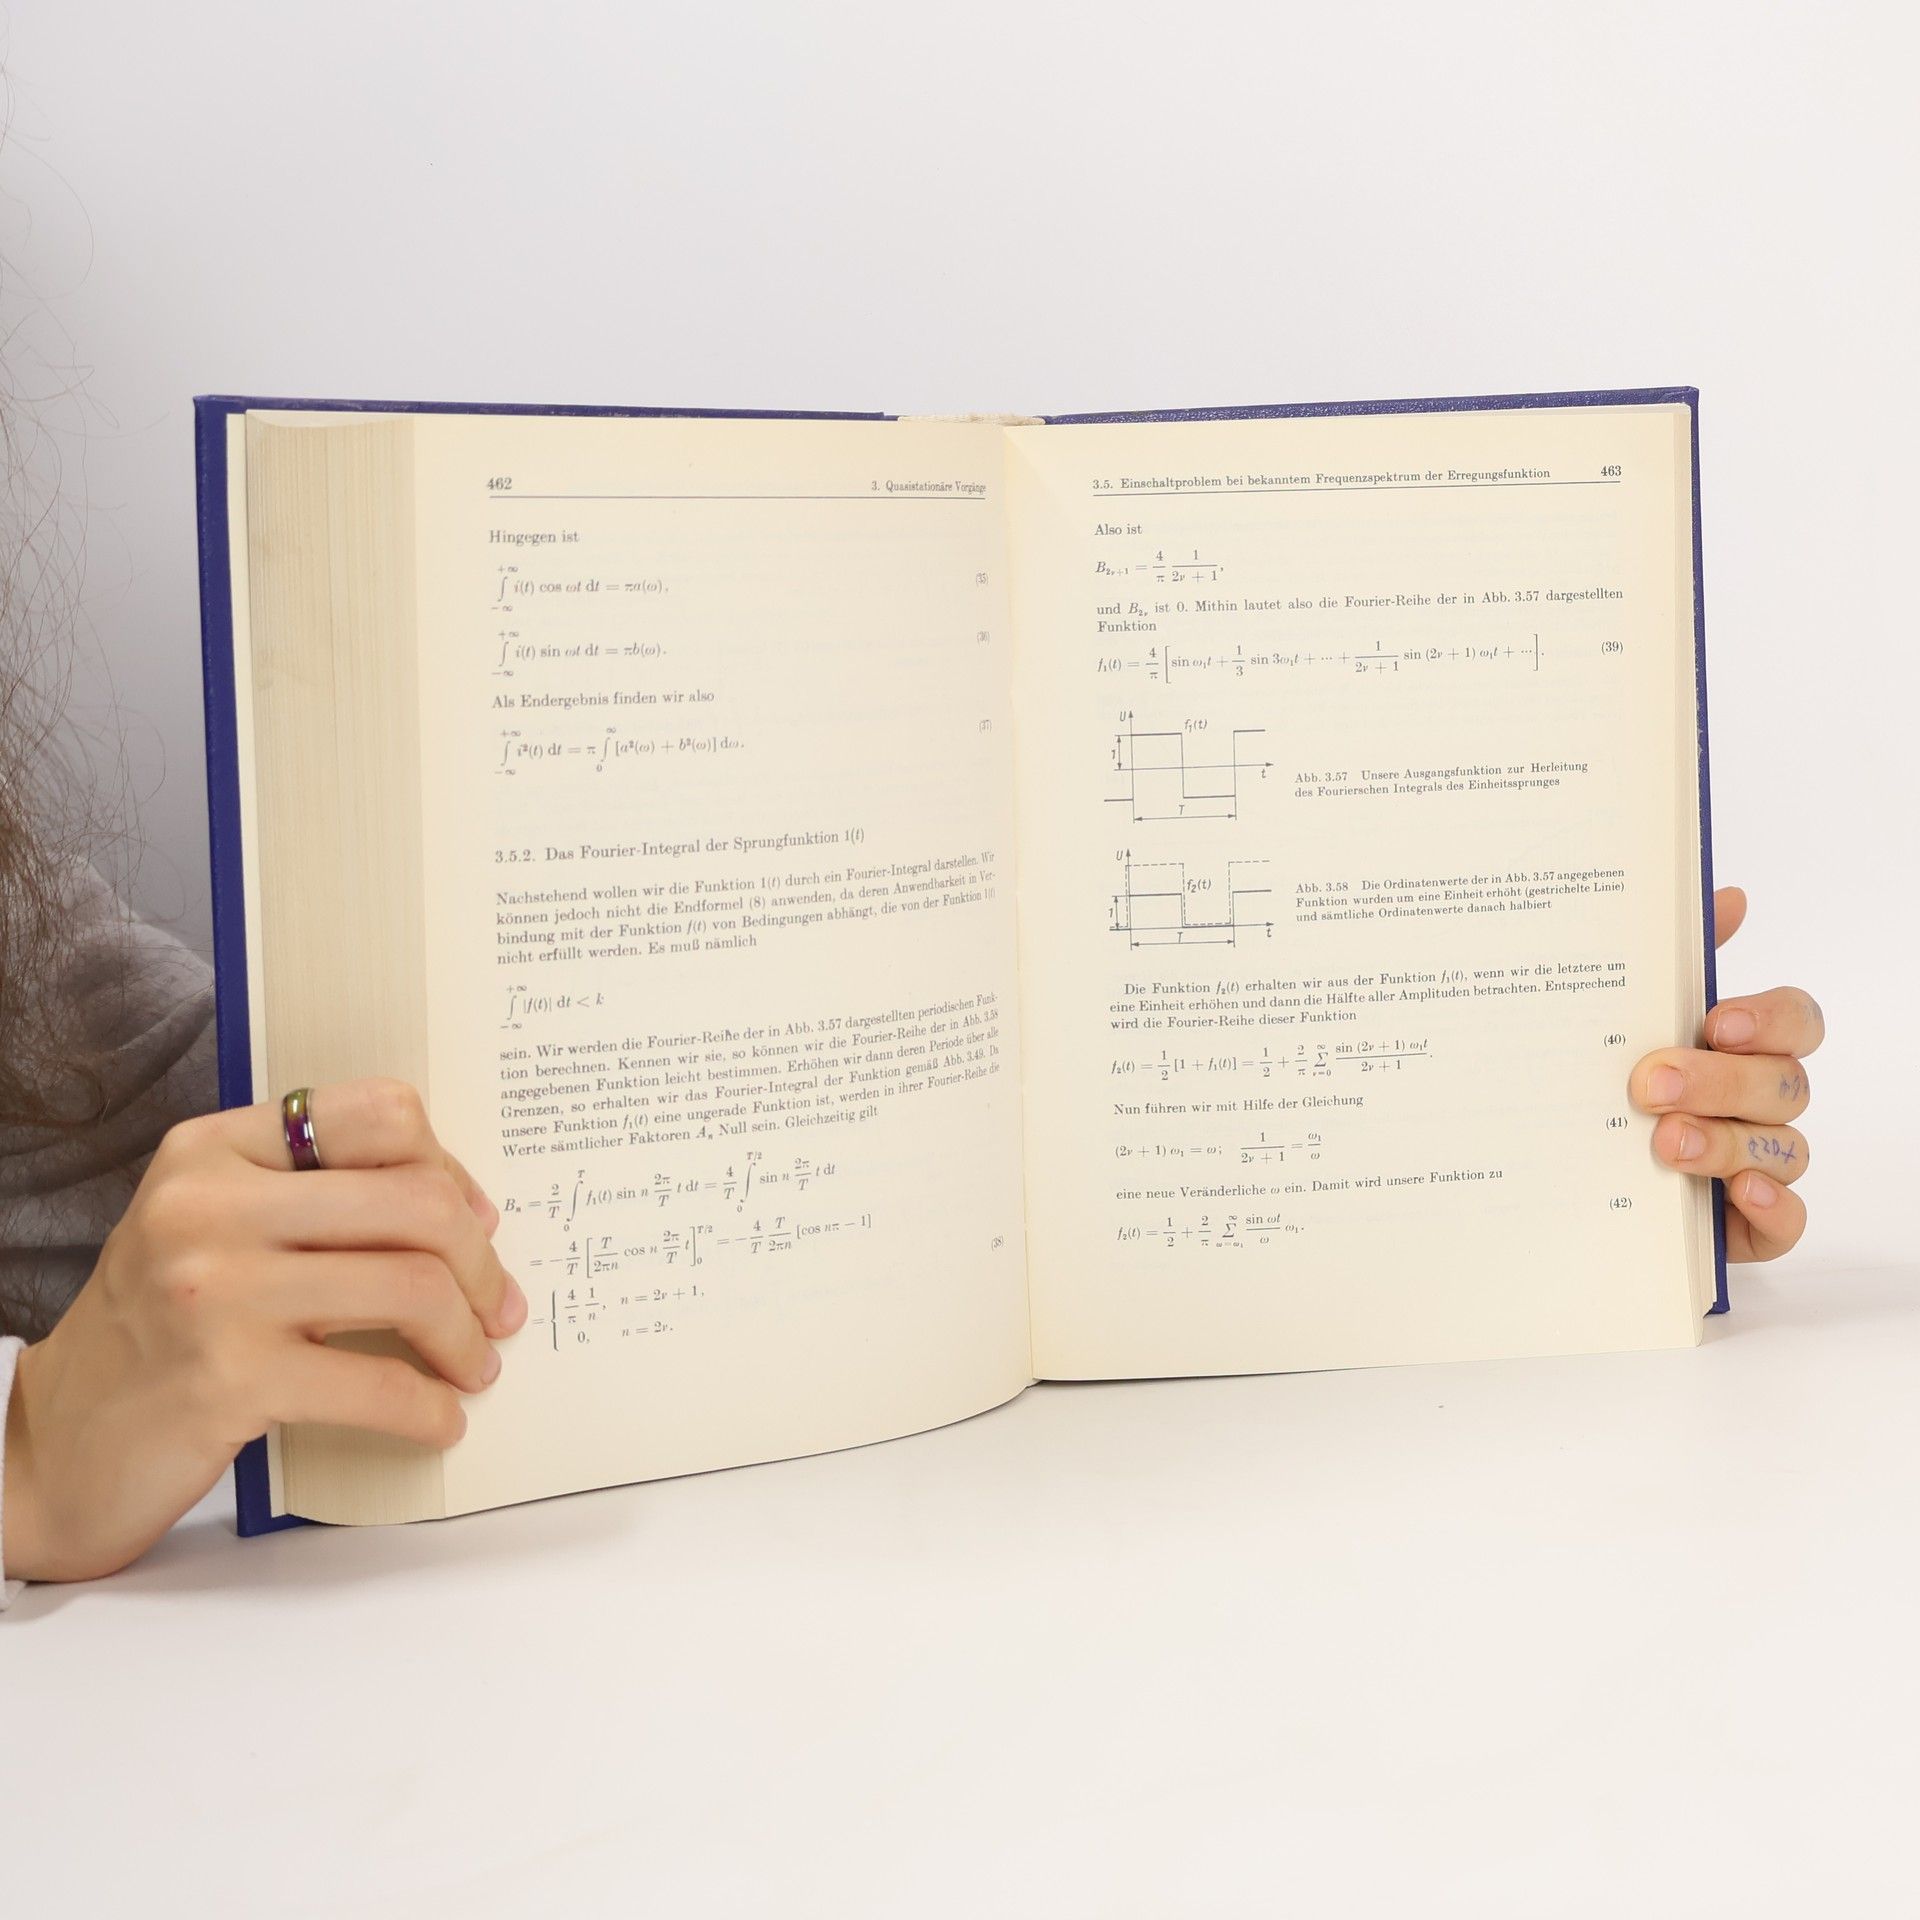 462
3. Quasistationäre Vorgänge
Hingegen ist
+∞ ∫ −∞ i(t) cos ωt dt = πa(ω), (35)
+∞ ∫ −∞ i(t) sin ωt dt = πb(ω). (36)
Als Endergebnis finden wir also
+∞ ∫ −∞ i²(t) dt = π ∞ ∫ 0 [a²(ω) + b²(ω)] dω. (37)
3.5.2. Das Fourier-Integral der Sprungfunktion 1(t)
Nachstehend wollen wir die Funktion 1(t) durch ein Fourier-Integral darstellen. Wir
können jedoch nicht die Endformel (8) anwenden, da deren Anwendbarkeit in Ver-
bindung mit der Funktion f(t) von Bedingungen abhängt, die von der Funktion 1(t)
nicht erfüllt werden. Es muß nämlich
+∞ ∫ −∞ |f(t)| dt < k
sein. Wir werden die Fourier-Reihe der in Abb. 3.57 dargestellten periodischen Funk-
tion berechnen. Kennen wir sie, so können wir die Fourier-Reihe der in Abb. 3.58
angegebenen Funktion leicht bestimmen. Erhöhen wir dann deren Periode über alle
Grenzen, so erhalten wir das Fourier-Integral der Funktion gemäß Abb. 3.49. Da
unsere Funktion f₁(t) eine ungerade Funktion ist, werden in ihrer Fourier-Reihe die
Werte sämtlicher Faktoren Aₙ Null sein. Gleichzeitig gilt
Bₙ = 2/T T ∫ 0 f₁(t) sin n 2π/T t dt = 4/T T/2 ∫ 0 sin n 2π/T t dt
= − 4/T [T/2πn cos n 2π/T t] T/2 0 = − 4/T T/2πn [cos nπ − 1] (38)
= { 4/π 1/n, n = 2ν + 1,
0, n = 2ν.
3.5. Einschaltproblem bei bekanntem Frequenzspektrum der Erregungsfunktion
463
Also ist
B₂ᵥ₊₁ = 4/π 1/(2ν + 1),
und B₂ᵥ ist 0. Mithin lautet also die Fourier-Reihe der in Abb. 3.57 dargestellten
Funktion
f₁(t) = 4/π [sin ω₁t + 1/3 sin 3ω₁t + ··· + 1/(2ν + 1) sin (2ν + 1) ω₁t + ···]. (39)
U f₁(t)
1
t
T
Abb. 3.57 Unsere Ausgangsfunktion zur Herleitung
des Fourierschen Integrals des Einheitssprunges
U
f₂(t)
1
T t
Abb. 3.58 Die Ordinatenwerte der in Abb. 3.57 angegebenen
Funktion wurden um eine Einheit erhöht (gestrichelte Linie)
und sämtliche Ordinatenwerte danach halbiert
Die Funktion f₂(t) erhalten wir aus der Funktion f₁(t), wenn wir die letztere um
eine Einheit erhöhen und dann die Hälfte aller Amplituden betrachten. Entsprechend
wird die Fourier-Reihe dieser Funktion
f₂(t) = 1/2 [1 + f₁(t)] = 1/2 + 2/π ∞ Σ ν=0 sin (2ν + 1) ω₁t/(2ν + 1). (40)
Nun führen wir mit Hilfe der Gleichung
(2ν + 1) ω₁ = ω; 1/(2ν + 1) = ω₁/ω (41)
eine neue Veränderliche ω ein. Damit wird unsere Funktion zu
f₂(t) = 1/2 + 2/π ∞ Σ ω=ω₁ sin ωt/ω ω₁. (42)